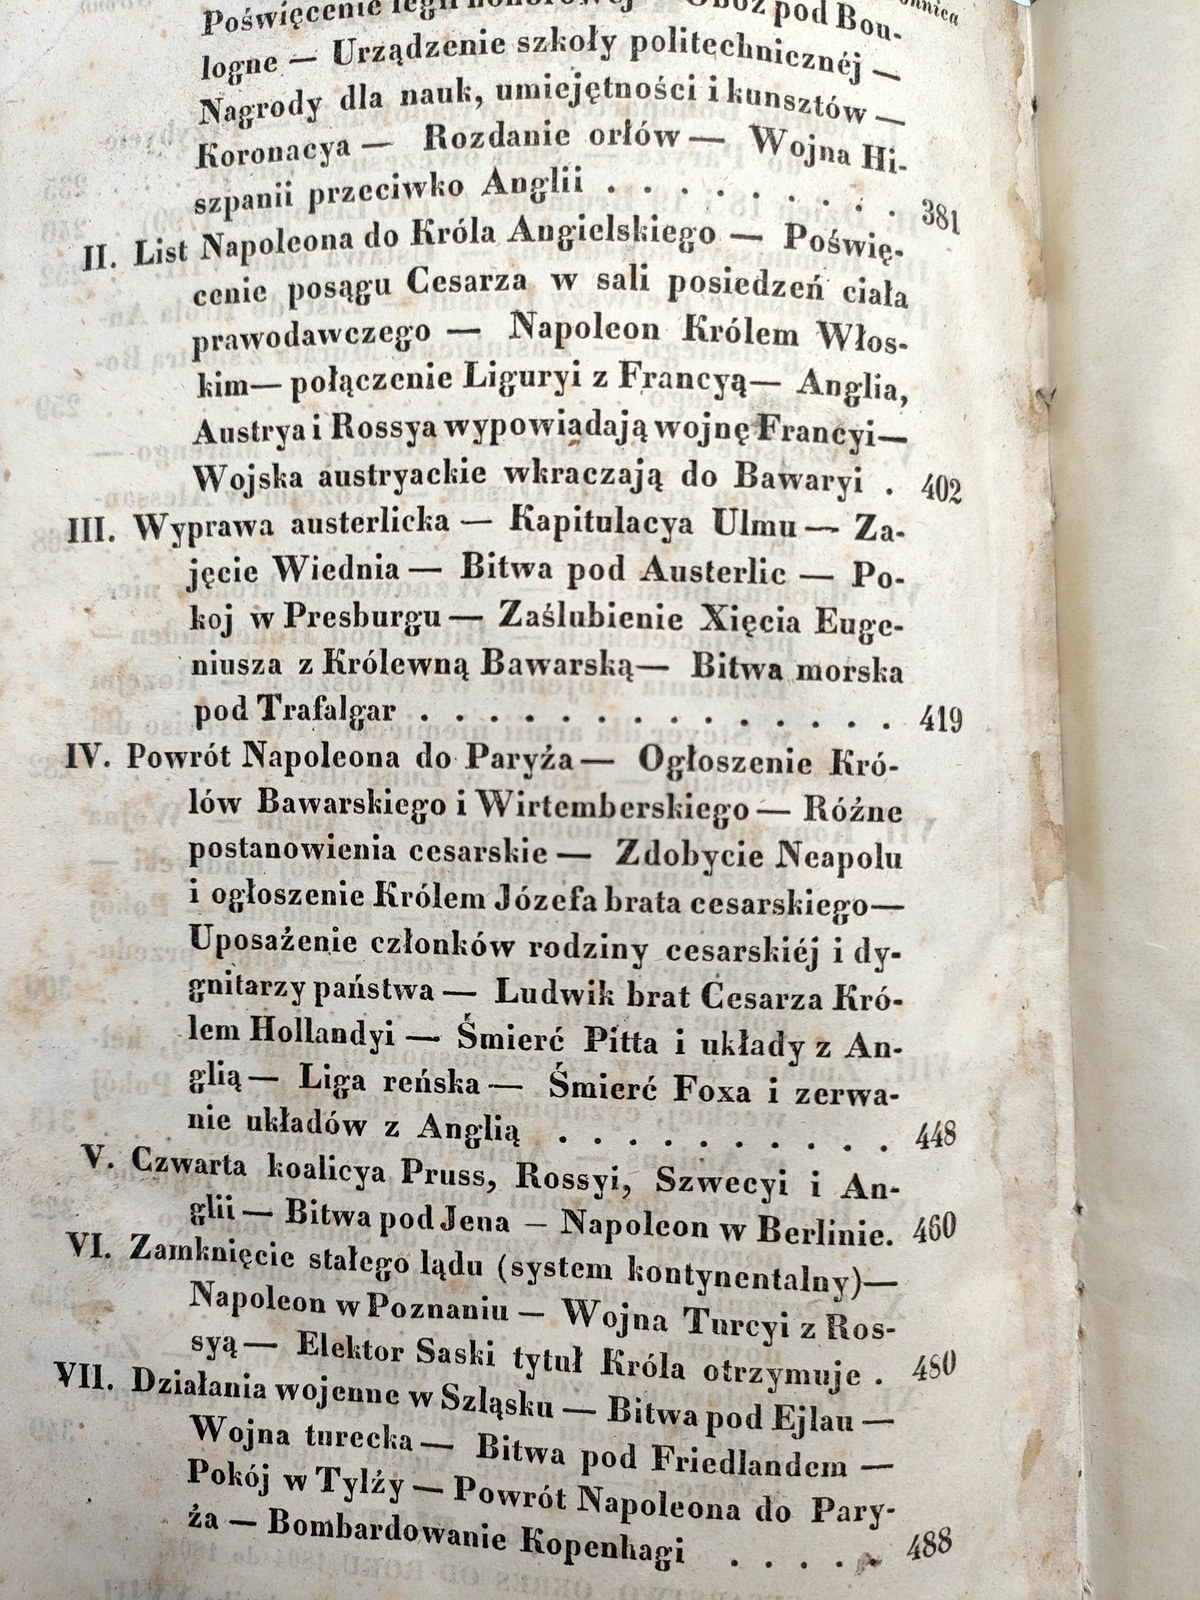 Poświęcenie legii honorowej — Obóz pod Bou-
logne — Urządzenie szkoły politechnicznéj —
Nagrody dla nauk, umiejętności i kunsztów —
Koronacya — Rozdanie orłów — Wojna Hi-
szpanii przeciwko Anglii . . . . . . . . . 381
II. List Napoleona do Króla Angielskiego — Poświę-
cenie posągu Cesarza w sali posiedzeń ciała
prawodawczego — Napoleon Królem Włos-
kim — połączenie Liguryi z Francyą — Anglia,
Austrya i Rossya wypowiadają wojnę Francyi —
Wojska austryackie wkraczają do Bawaryi . 402
III. Wyprawa austerlicka — Kapitulacya Ulmu — Za-
jęcie Wiednia — Bitwa pod Austerlic — Po-
koj w Presburgu — Zaślubienie Xięcia Euge-
niusza z Królewną Bawarską — Bitwa morska
pod Trafalgar . . . . . . . . . . . . . . 419
IV. Powrót Napoleona do Paryża — Ogłoszenie Kró-
lów Bawarskiego i Wirtemberskiego — Różne
postanowienia cesarskie — Zdobycie Neapolu
i ogłoszenie Królem Józefa brata cesarskiego —
Uposażenie członków rodziny cesarskiéj i dy-
gnitarzy państwa — Ludwik brat Cesarza Kró-
lem Hollandyi — Śmierć Pitta i układy z An-
glią — Liga reńska — Śmierć Foxa i zerwa-
nie układów z Anglią . . . . . . . . . . . 448
V. Czwarta koalicya Pruss, Rossyi, Szwecyi i An-
glii — Bitwa pod Jena — Napoleon w Berlinie. 460
VI. Zamknięcie stałego lądu (system kontynentalny) —
Napoleon w Poznaniu — Wojna Turcyi z Ros-
syą — Elektor Saski tytuł Króla otrzymuje . 480
VII. Działania wojenne w Szląsku — Bitwa pod Ejlau —
Wojna turecka — Bitwa pod Friedlandem —
Pokój w Tylży — Powrót Napoleona do Pary-
ża — Bombardowanie Kopenhagi . . . . . 488